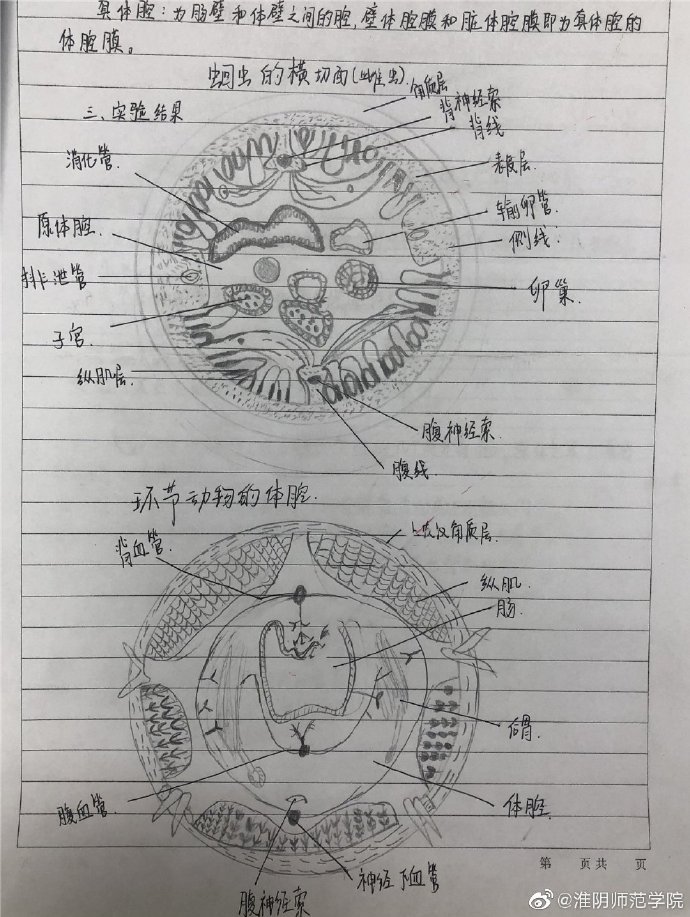 真体腔：为肠壁和体壁之间的腔，壁体腔膜和脏体腔膜即为真体腔的
体腔膜。
蛔虫的横切面(雌虫)
三、实验结果
角质层
背神经索
背线
消化管
表皮层
输卵管
原体腔
侧线
排泄管
卵巢
子宫
纵肌层
腹神经索
腹线
环节动物的体腔
背血管
角质层
纵肌
肠
后肾
腹血管
体腔
神经下血管
腹神经索
第 页共 页
@淮阴师范学院